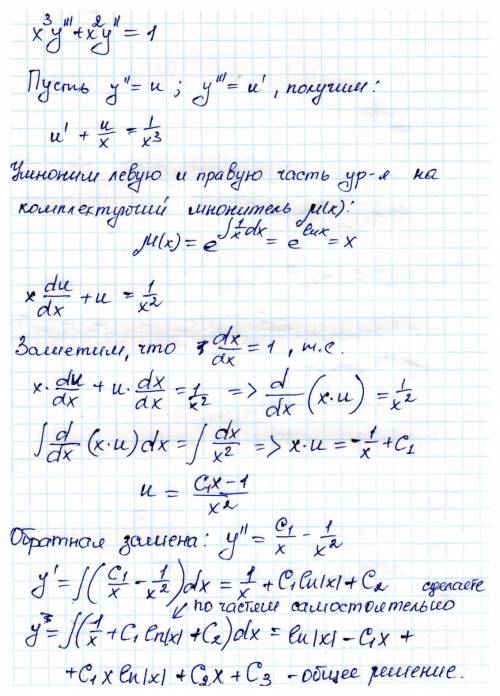 x³y''' + x²y'' = 1
Пусть y'' = u ; y''' = u' , получим:
u' + u/x = 1/x³
Умножим левую и правую часть ур-я на
комплектующий множитель μ(x):
μ(x) = e^(∫ 1/x dx) = e^(ln x) = x
x du/dx + u = 1/x²
Заметим, что dx/dx = 1 , т.е.
x · du/dx + u · dx/dx = 1/x² => d/dx (x·u) = 1/x²
∫ d/dx (x·u) dx = ∫ dx/x² => x·u = -1/x + C₁
u = (C₁x - 1)/x²
Обратная замена: y'' = C₁/x - 1/x²
y' = ∫(C₁/x - 1/x²) dx = 1/x + C₁ ln|x| + C₂ сделаете
по частям самостоятельно
y = ∫(1/x + C₁ ln|x| + C₂) dx = ln|x| - C₁x +
+ C₁x ln|x| + C₂x + C₃ - общее решение.